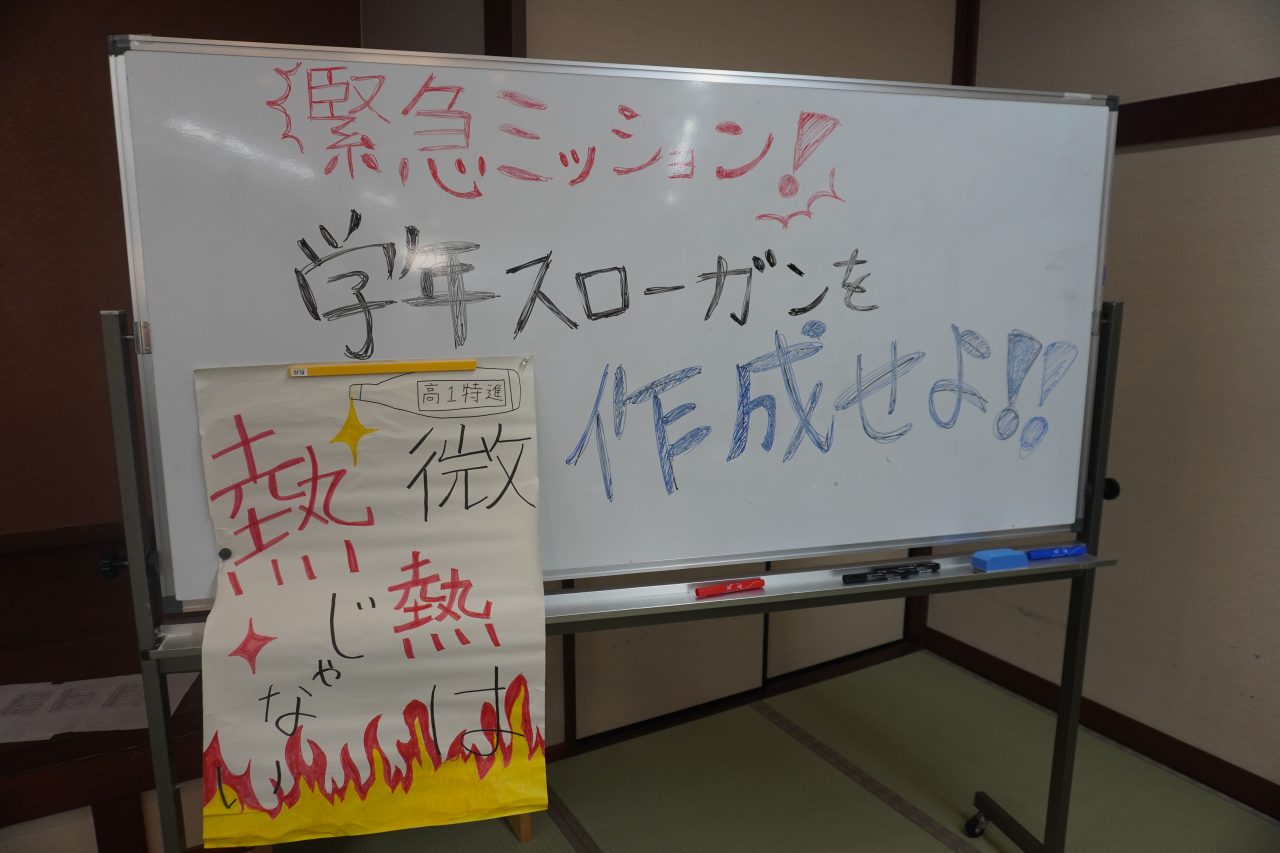 緊急ミッション!
学年スローガンを
作成せよ!!
高1特進
微熱は
熱じゃない